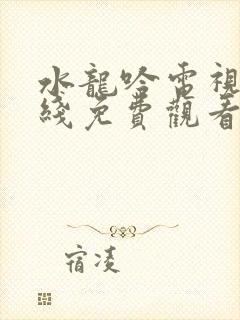 水龍吟電視
綫免費觀看
宿凌